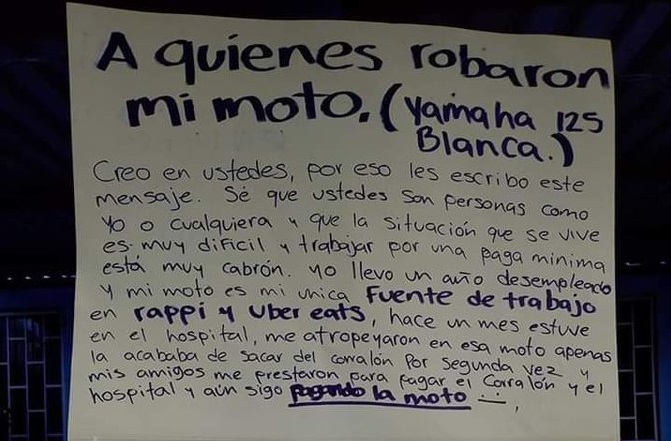 A quienes robaron
mi moto. (Yamaha 125
Blanca.)
Creo en ustedes, por eso les escribo este
mensaje. Sé que ustedes son personas como
yo o cualquiera y que la situación que se vive
es muy dificil y trabajar por una paga minima
está muy cabrón. yo llevo un año desempleado
y mi moto es mi unica Fuente de trabajo
en rappi y Uber eats, hace un mes estuve
en el hospital, me atropeyaron en esa moto apenas
la acababa de sacar del corralón Por segunda vez y
mis amigos me prestaron para pagar el Corralón y el
hospital y aún sigo pagando la moto